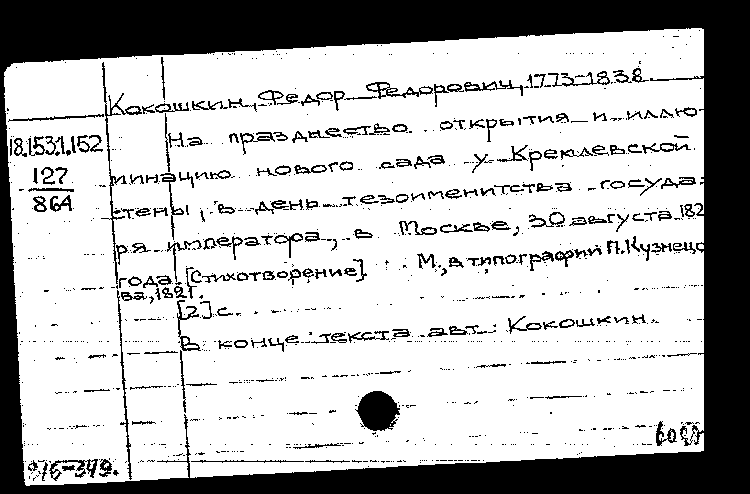 Кокошкин, Федор Федорович, 1773-1838.
18.153.1.152
127
864
На празднество открытия и иллю-
минацию нового сада у Кремлевской
стены, в день тезоименитства госуда-
ря императора, в Москве, 30 августа 182
года. [Стихотворение]. М., в типографии П. Кузнецо
ва, 1821.
[2] с.
В конце текста авт.: Кокошкин.
916-349.